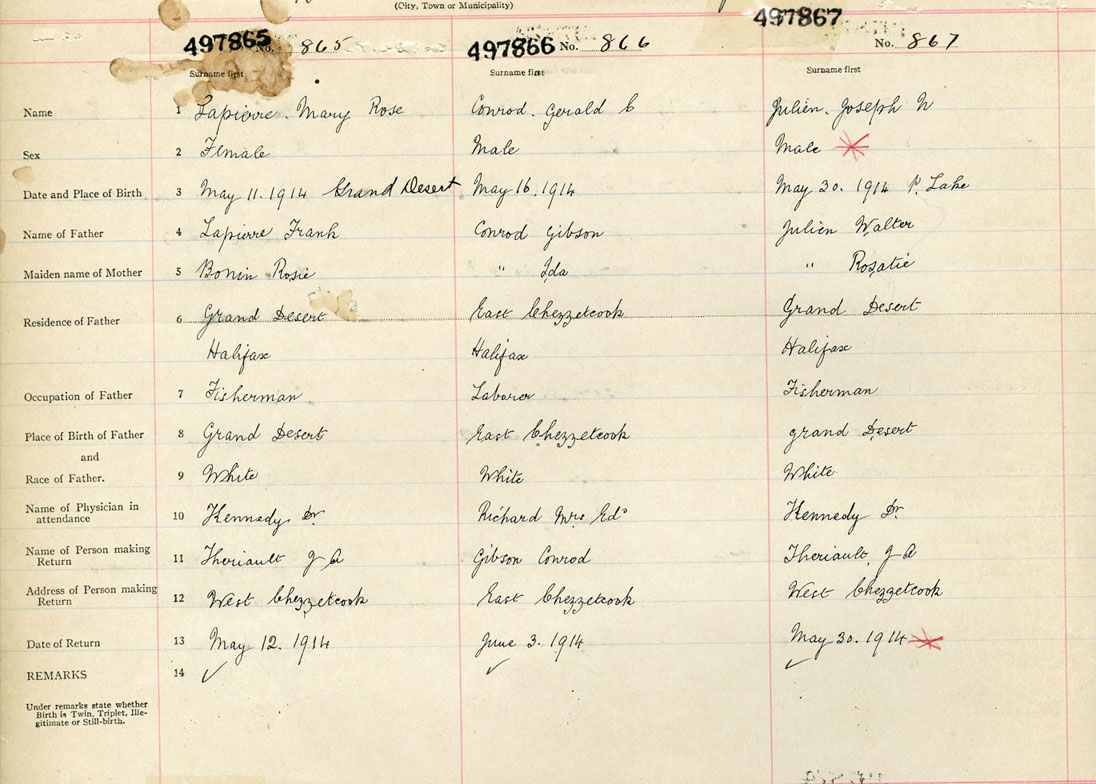 (City, Town or Municipality)
497865 No. 865 497866 No. 866 497867 No. 867
Surname first Surname first Surname first
Name 1 Lapierre. Mary Rose Conrod. Gerald C Julien. Joseph W
Sex 2 Female Male Male
Date and Place of Birth 3 May 11. 1914 Grand Desert May 16. 1914 May 30. 1914 P. Lake
Name of Father 4 Lapierre Frank Conrod Gibson Julien Walter
Maiden name of Mother 5 Bonin Rosie " Ida " Rosatie
Residence of Father 6 Grand Desert East Chezzetcook Grand Desert
Halifax Halifax Halifax
Occupation of Father 7 Fisherman Laborer Fisherman
Place of Birth of Father 8 Grand Desert East Chezzetcook grand Desert
and
Race of Father. 9 White White White
Name of Physician in
attendance 10 Kennedy Dr Richard Mrs Edd Kennedy Dr.
Name of Person making
Return 11 Theriault J A Gibson Conrod Theriault, J A
Address of Person making
Return 12 West Chezzetcook East Chezzetcook West Chezzetcook
Date of Return 13 May 12. 1914 June 3. 1914 May 30. 1914
REMARKS 14
Under remarks state whether
Birth is Twin, Triplet, Ille-
gitimate or Still-birth.